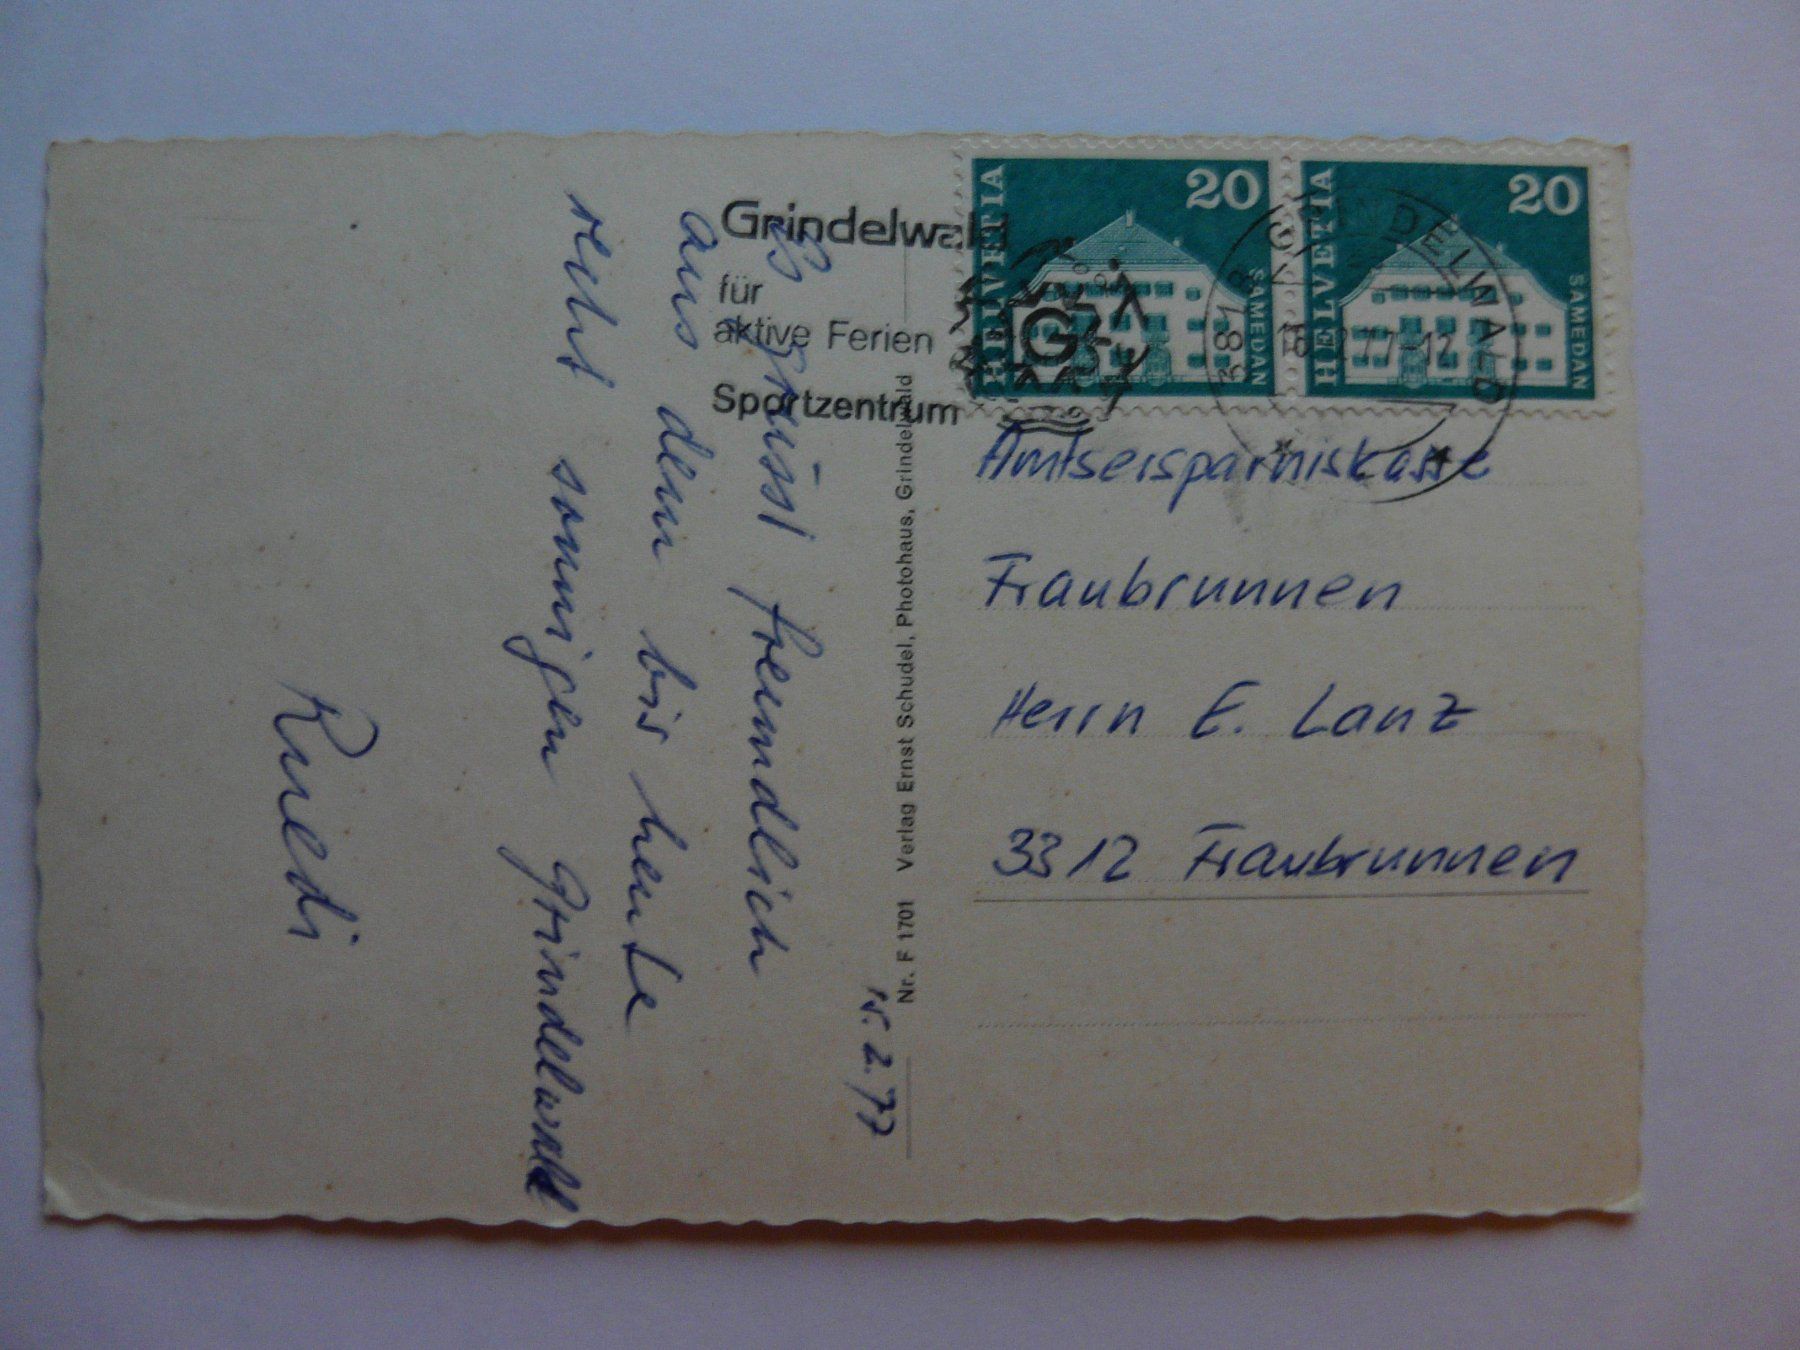 Es grüsst freundlich
aus dem bis heute
recht sonnigen Grindelwald
Ruedi
15. 2. 77
Nr. F 1701 Verlag Ernst Schudel, Photohaus, Grindelwald
Grindelwald
für
aktive Ferien
Sportzentrum
G
HELVETIA 20 SAMEDAN
HELVETIA 20 SAMEDAN
3818 GRINDELWALD
77-12
Amtsersparniskasse
Fraubrunnen
Herrn E. Lanz
3312 Fraubrunnen